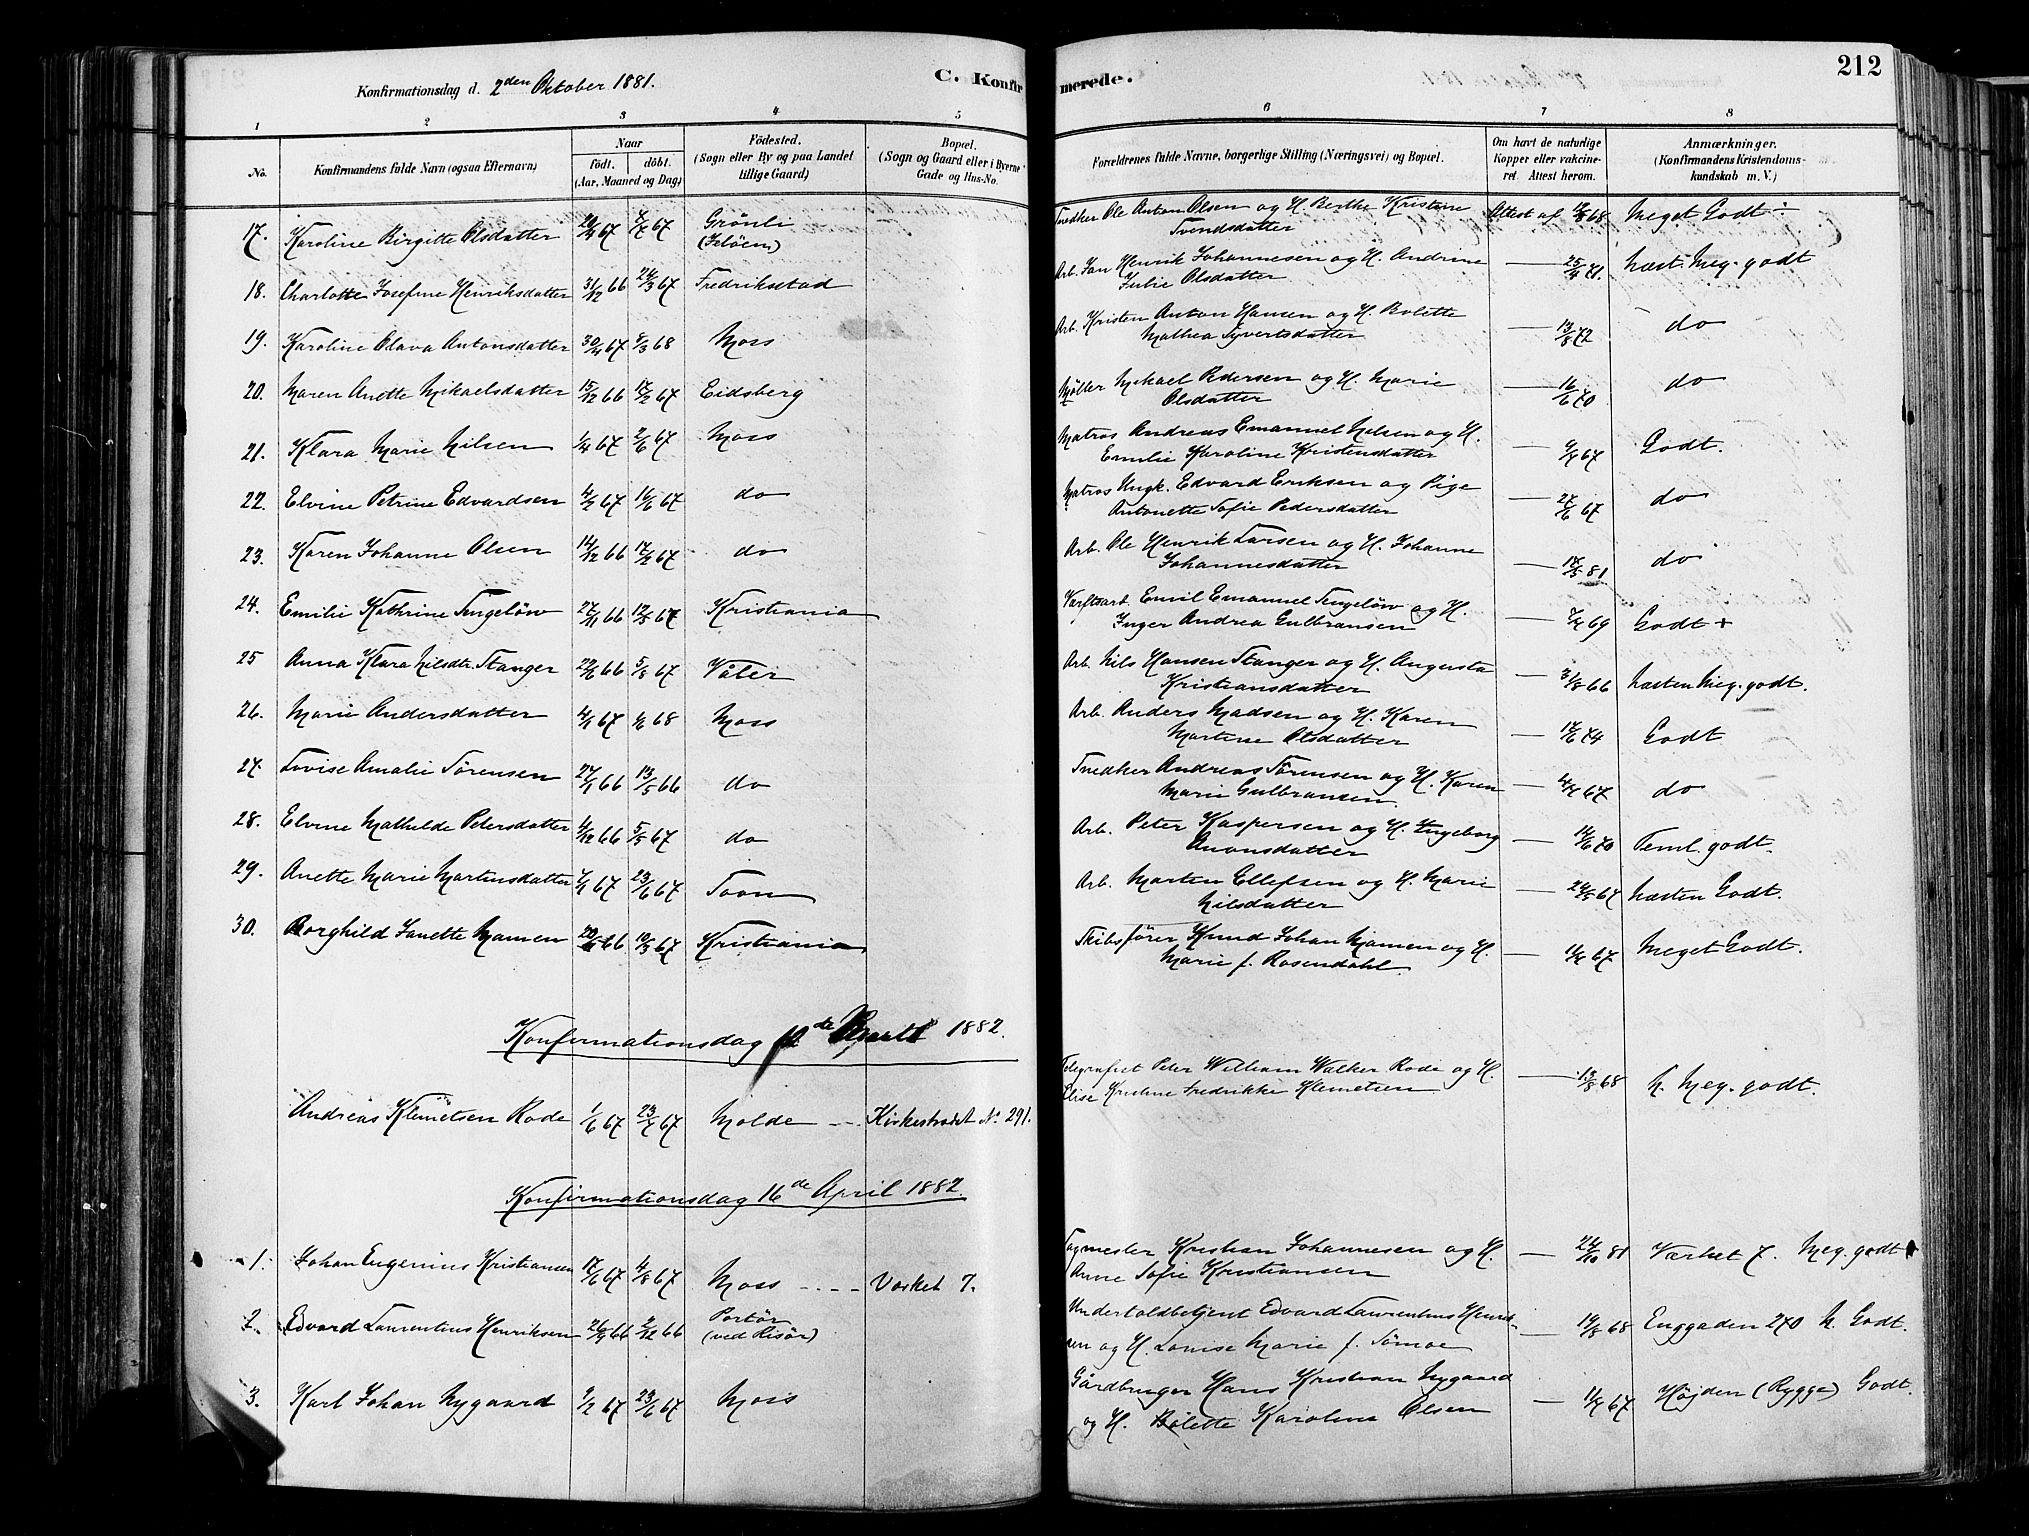 212
Konfirmationsdag d. 2den Oktober 1881.
C. Konfirmerede.
1 2 3 4 5 6 7 8
No. Konfirmandens fulde Navn (ogsaa Efternavn) Naar födt. döbt. (Aar, Maaned og Dag) Födested. (Sogn eller By og paa Landet tillige Gaard) Bopæl. (Sogn og Gaard eller i Byerne Gade og Hus-No. Forældrenes fulde Navne, borgerlige Stilling (Næringsvei) og Bopæl. Om havt de naturlige Kopper eller vakcineret. Attest herom. Anmærkninger. (Konfirmandens Kristendomskundskab m. V.)
17. Karoline Birgitte Olsdatter 67 67 Grönli (Jelöen) Snedker Ole Anton Olsen og H. Berthe Kristine Svendsdatter Attest af 68 Meget Godt
18. Charlotte Josefine Henriksdatter 31/12 66 24/3 67 Fredrikstad Arb. Jan Henrik Johannesen og H. Andrine Julie Olsdatter — 25/4 71. Næst. Meg. godt
19. Karoline Olava Antonsdatter 67 68 Moss Arb. Kristen Anton Hansen og H. Bolette Mathea Syvertsdatter — 13/8 72 do
20. Maren Anette Mikaelsdatter 15/12 66 17/2 67 Eidsberg Møller Mikael Pedersen og H. Marie Olsdatter — 16/6 70 do
21. Klara Marie Nilsen 1/4 67 2/6 67 Moss Matros Andreas Emanuel Nilsen og H. Emilie Karoline Kristensdatter — 67 Godt.
22. Elvine Petrine Edvardsen 67 16/6 67 do Matros Ungk. Edvard Eriksen og Pige Antonette Sofie Pedersdatter — 27/6 67 do
23. Karen Johanne Olsen 14/12 66 17/2 67 do Arb. Ole Henrik Larsen og H. Johanne Johannesdatter — 81 do
24. Emilie Kathrine Tengelöw 27/11 66 12/5 67 Kristiania Værftsarb. Emil Emanuel Tengelöw og H. Inger Andrea Gulbransen — 69 Godt +
25 Anna Klara Nilsdt. Stanger 66 5/8 67 Våler Arb. Nils Hansen Stanger og H. Augusta Kristiansdatter — 66 Næsten Meg. godt.
26. Marie Andersdatter 67 68 Moss Arb. Anders Madsen og H. Karen Martine Olsdatter — 74 Godt
27. Lovise Amalie Sörensen 27/1 66 13/5 66 do Snedker Andreas Sörensen og H. Karen Marie Gulbransen — 67 do
28. Elvine Mathilde Petersdatter 66 5/5 67 do Arb. Peter Kaspersen og H. Ingeborg — 14/6 70 Teml. godt.
29. Anette Marie Martinsdatter 67 23/6 67 Soon Arb. Martin Ellefsen og H. Marie Nilsdatter — 67 Næsten Godt.
30. Borghild Janette Mamen 66 67 Kristiania Skibsfører Knud Johan Mamen og H. Marie f. Rosendahl — 67 Meget Godt.
Konfirmationsdag 1882.
Andreas Klemetsen Rode 1/6 67 67 Molde --- Kirkestrædet No. 291. Telegrafist Peter William Walker Rode og H. Elise Kristine Fredrikke Klemetsen — 13/8 68 N. Meg. godt.
Konfirmationsdag 16de April 1882.
1. Johan Eugenius Kristiansen 17/6 67 4/8 67 Moss ---- Værket 7. Sagmester Kristian Johannesen og H. Anne Sofie Kristiansen — 24/10 81 Værket 7. Meg. godt
2. Edvard Laurentius Henriksen 26/9 66 2/12 66 Portör (ved Risör) Undertoldbetjent Edvard Laurentius Henriksen og H. Louise Marie f. Sömoe — 19/8 68 Enggaden 270 N. Godt.
3. Karl Johan Nygaard 67 23/6 67 Moss Gårdbruger Hans Kristian Nygaard og H. Bolette Karoline Olsen — 67 Højden (Rygge) Godt.